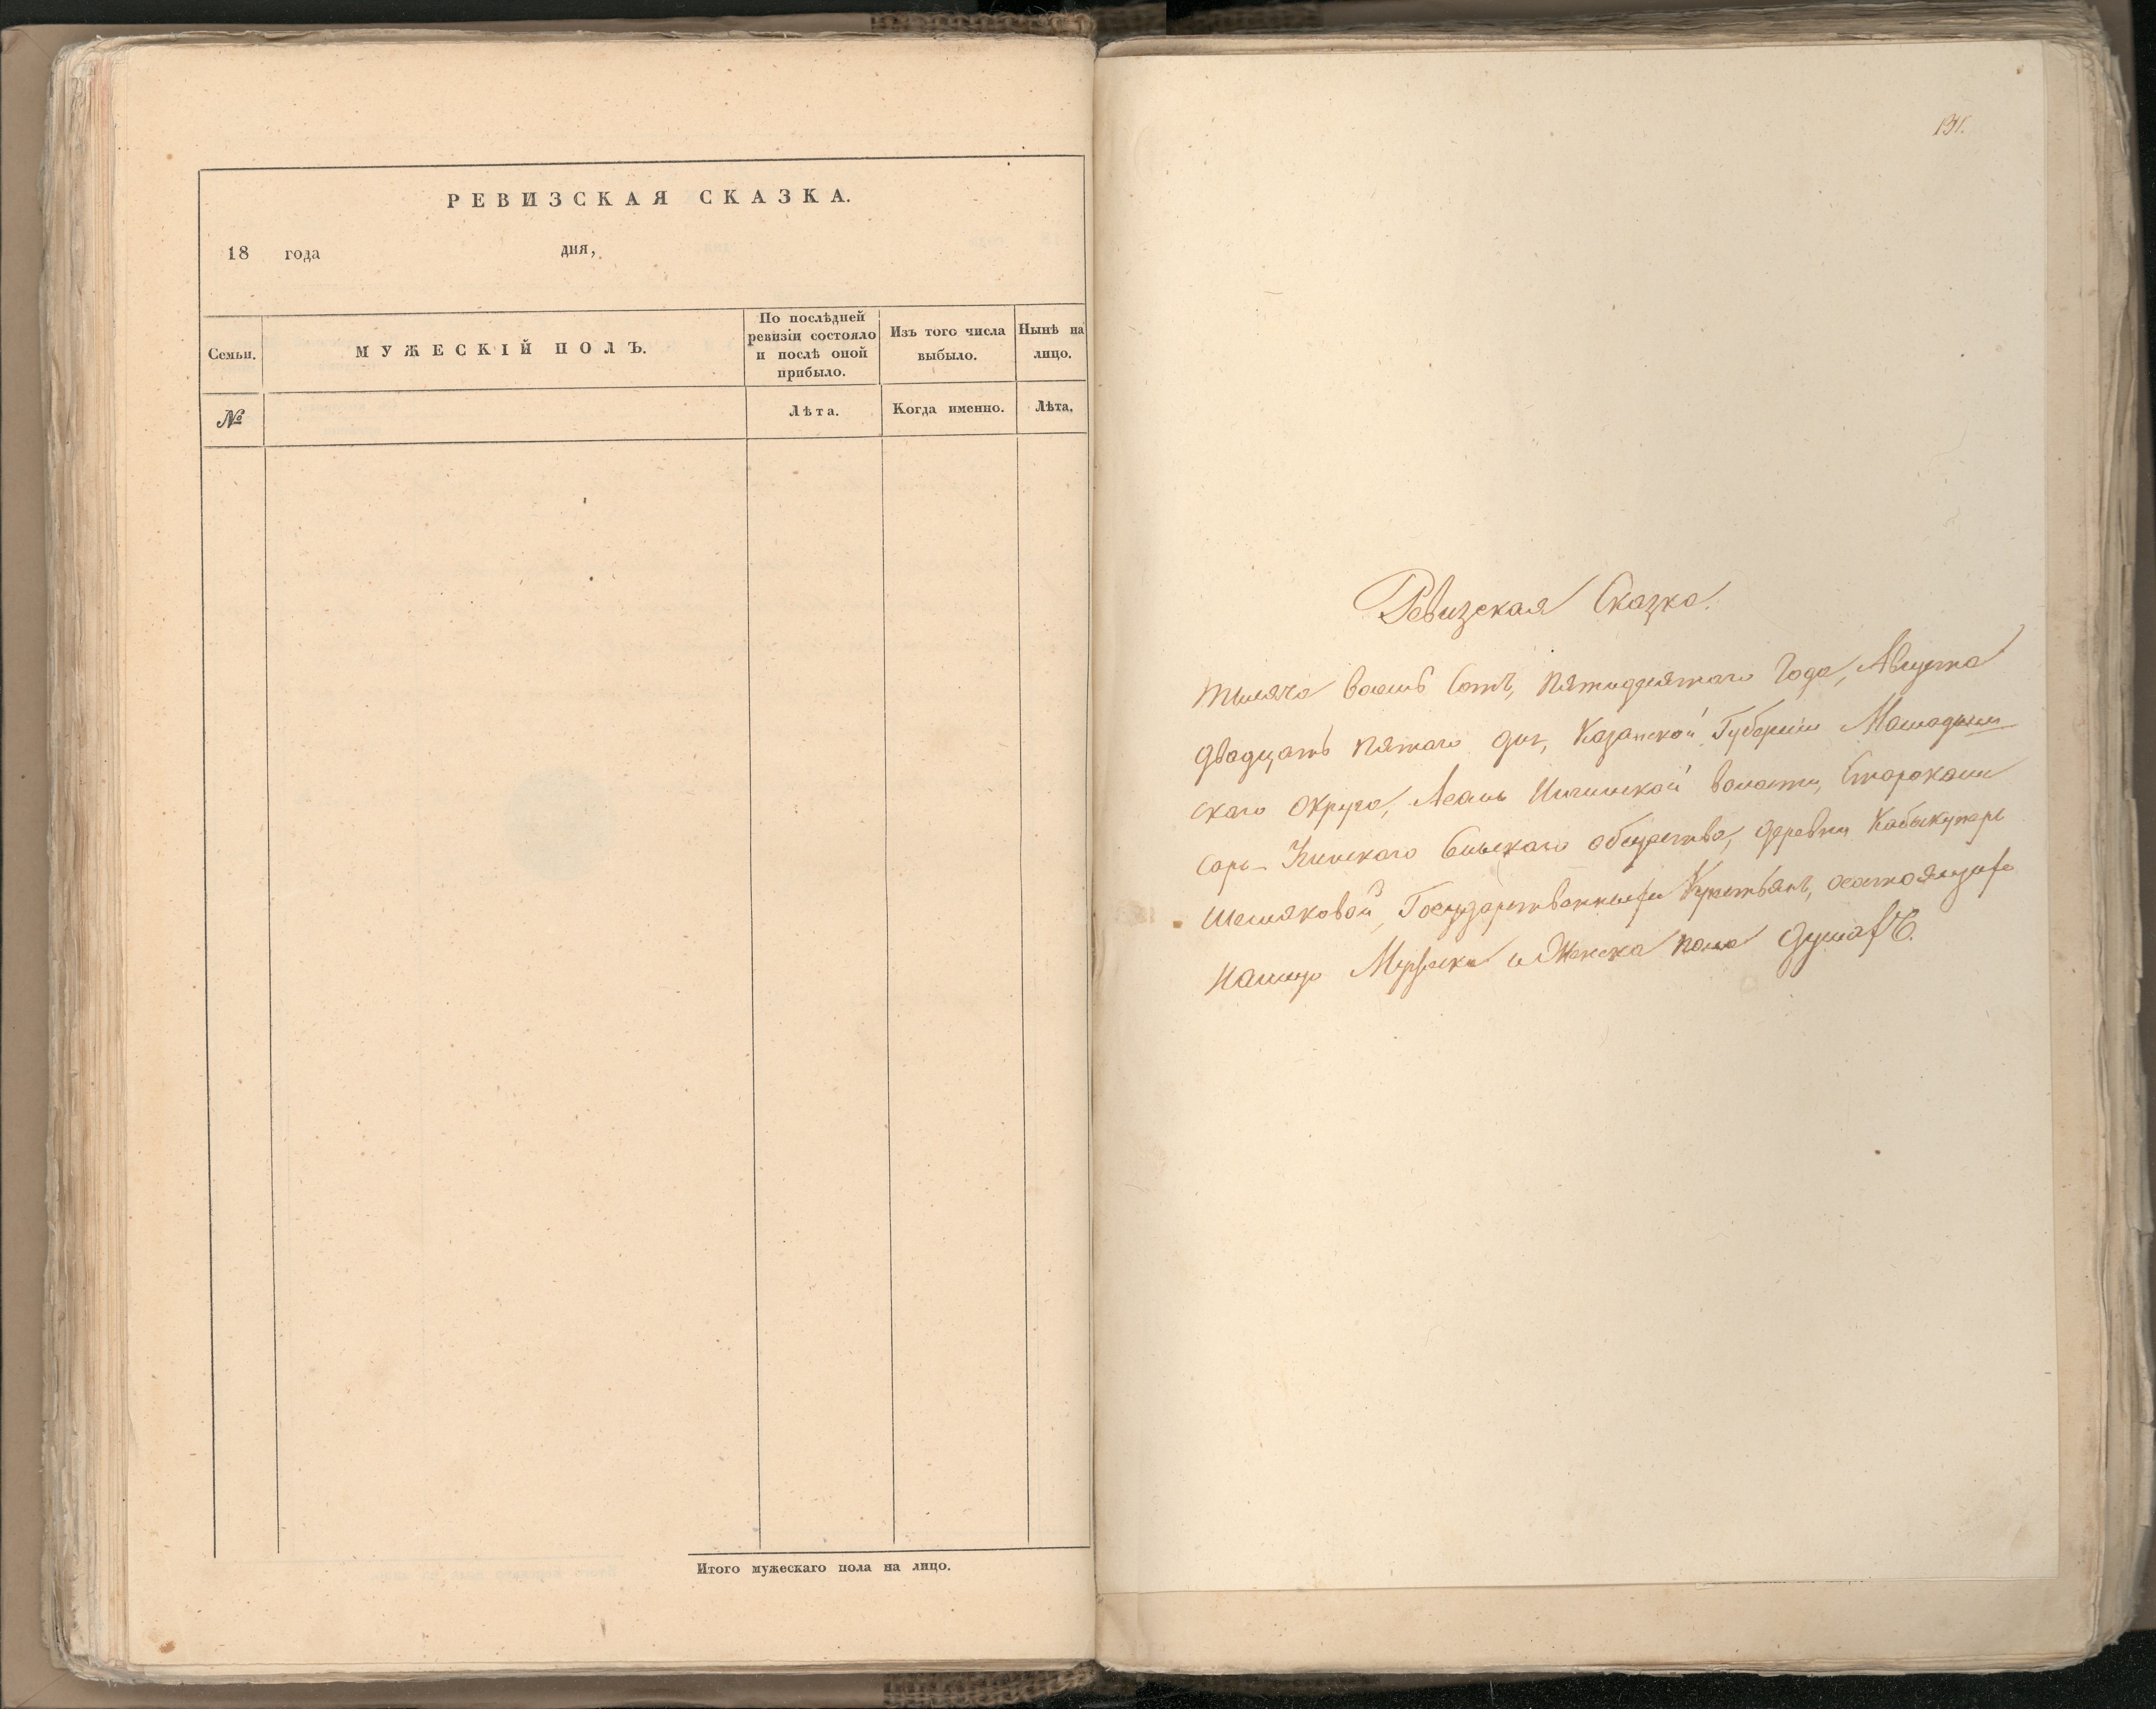 РЕВИЗСКАЯ СКАЗКА.
18 года дня,
Семьи.
МУЖЕСКІЙ ПОЛЪ.
По послѣдней
ревизіи состояло
и послѣ оной
прибыло.
Изъ того числа
выбыло.
Нынѣ на
лицо.
№
Лѣта.
Когда именно.
Лѣта.
Итого мужескаго пола на лицо.
131.
Ревизская Сказка.
тысяча восемь сотъ, пятидесятаго Года, Августа
двадцать пятаго дня, Казанской Губерніи Мамадыш
скаго округа, волости, Староками
сарь общества, деревни
Государственныхъ Крестьянъ, осостоящихъ
налицо Мужеска и Женска пола душахъ.